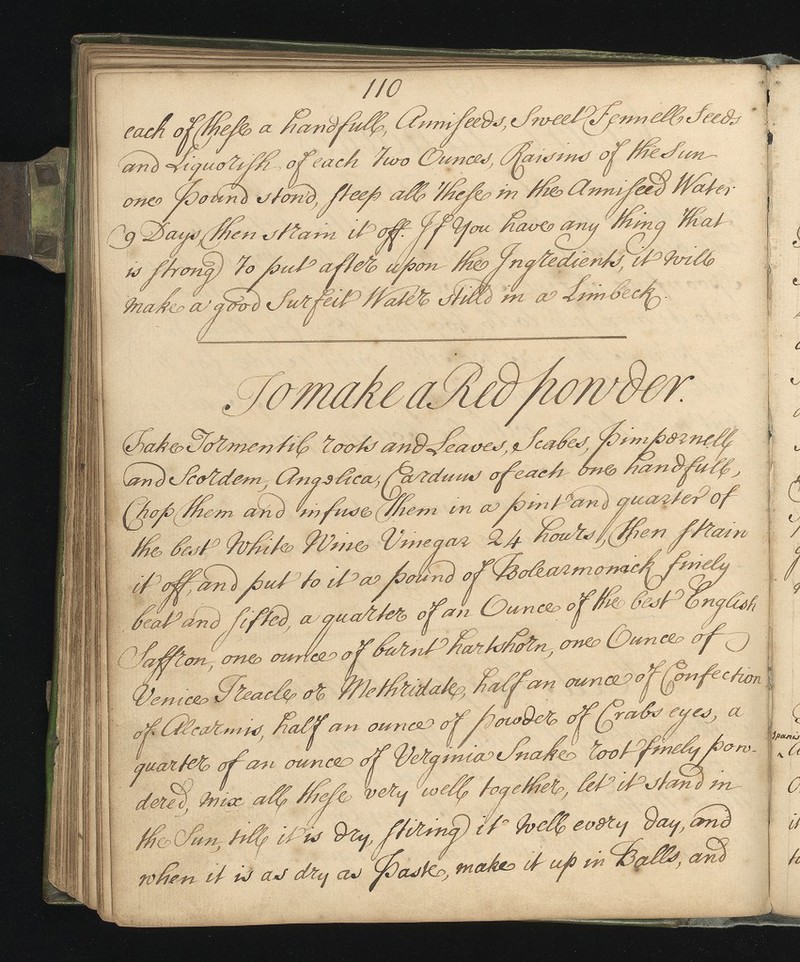 110
each of these a handfull, Anniseeds, Sweet Fennell Seeds
and Liquorish of each Two Ounces, Raisins of the Sun
one Pound stond, steep all These in the Anniseed Water
9 Days, then strain it off. If You have any Thing That
is strong To put after upon the Ingredients, it will
make a good Surfeit Water stilld in a Limbeck.
To make a Red powder.
Take Tormentil roots and Leaves, Scabes, Pimpernell
and Scordem, Angelica, Carduus of each one handfull,
Chop Them and infuse Them in a pint and quarter of
the best White Wine Vinegar 24 hours, then strain
it off, and put to it a pound of Bolearmonick finely
beat and sifted, a quarter of an Ounce of the best English
Saffron, one ounce of burnt hartshorn, one Ounce of
Venice Treacle or Methridate, half an ounce of Confection
of Alcarmis, half an ounce of powder of Crabs eyes, a
quarter of an ounce of Verginia Snake root finely pow-
dered, mix all these very well together, let it stand in
the Sun, till it is dry, stiring it well every day, and
when it is as dry as Paste, make it up in Balls, and